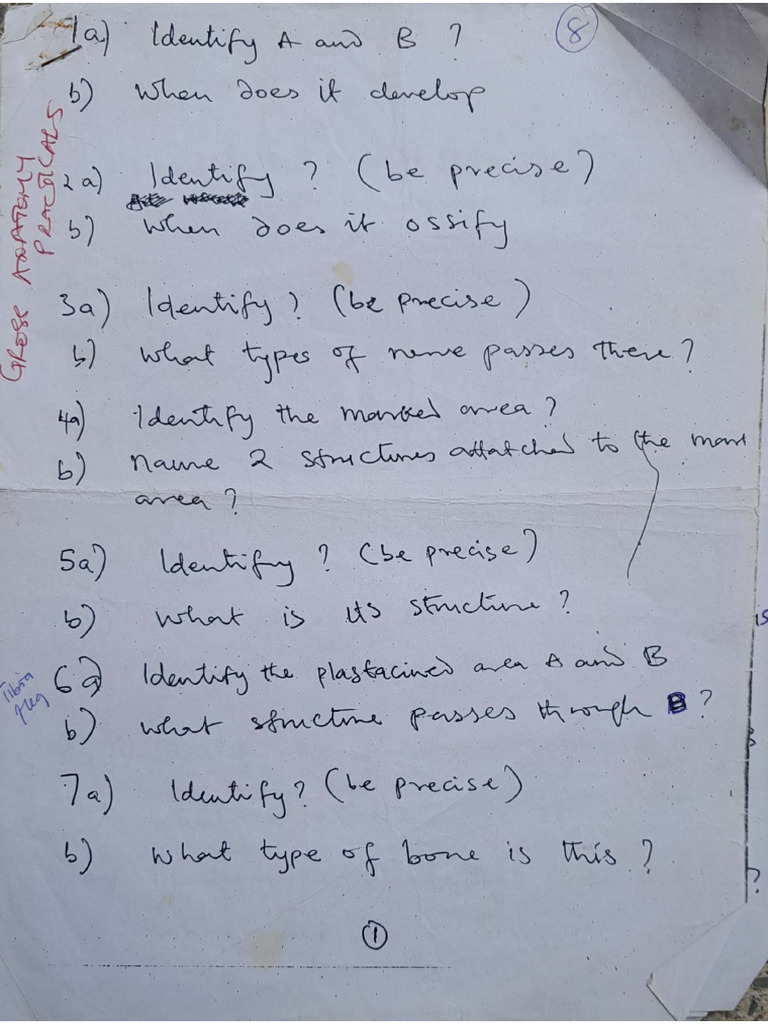 8
1a) Identify A and B ?
b) when does it develop
GROSS ANATOMY
PRACTICALS
2a) Identify ? (be precise)
b) when does it ossify
3a) Identify? (be precise)
b) what types of nerve passes there?
4a) Identify the marked area ?
b) name 2 structures attatched to the mark
area ?
5a) Identify ? (be precise)
b) what is its structure ?
6a) Identify the plastacined area A and B
tibia
b) what structure passes through B ?
7a) Identify? (be precise)
b) what type of bone is this ?
1